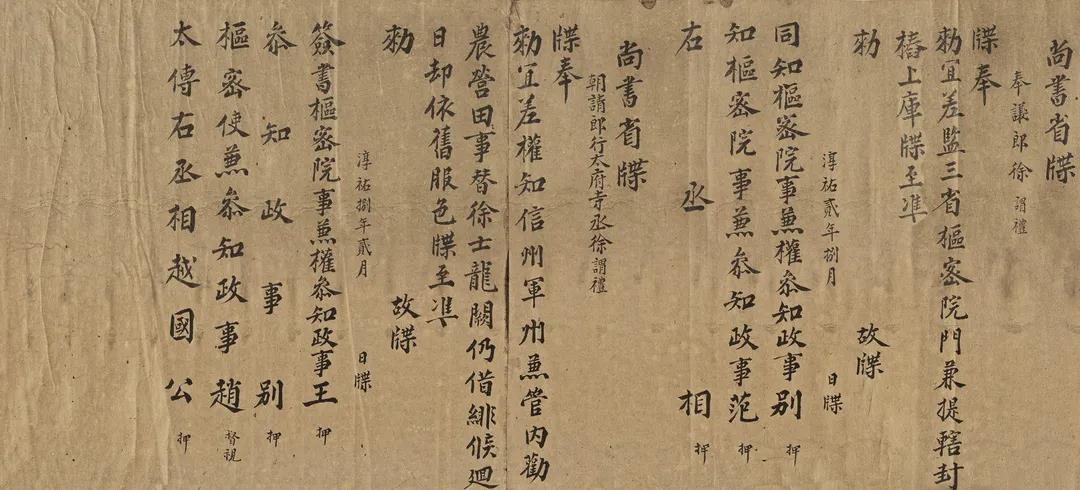 尚書省牒
奉議郎徐謂禮
牒奉
勑宜差監三省樞密院門兼提轄封
樁上庫牒至准
勑故牒
淳祐貳年捌月日牒
同知樞密院事兼權參知政事別押
知樞密院事兼參知政事范押
右丞相押
尚書省牒
朝請郎行太府寺丞徐謂禮
牒奉
勑宜差權知信州軍州兼管內勸
農營田事替徐士龍闕仍借緋候迴
日却依舊服色牒至准
勑故牒
淳祐捌年貳月日牒
簽書樞密院事兼權參知政事王押
參知政事別押
樞密使兼參知政事趙督視
太傅右丞相越國公押